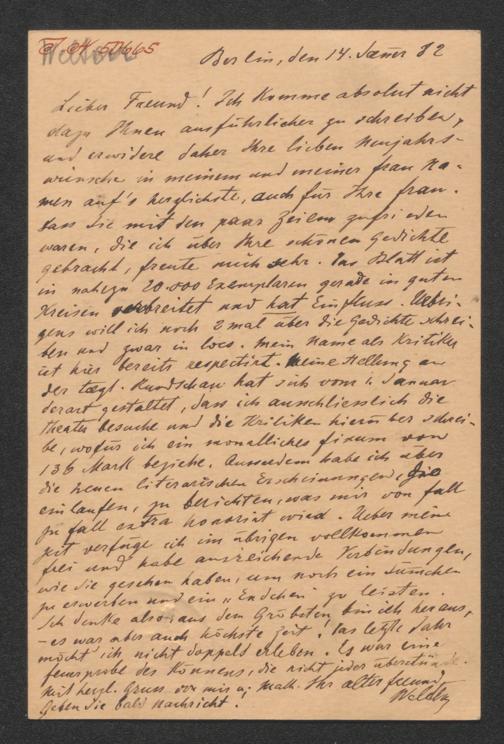 J. N. 50665
Berlin, den 14. Jänner 82
Lieber Freund! Ich komme absolut nicht
dazu Ihnen ausführlicher zu schreiben,
und erwidere daher Ihre lieben Neujahrs-
wünsche in meinem und meiner Frau Na-
men auf's herzlichste, auch für Ihre Frau.
Dass Sie mit den paar Zeilen zufrieden
waren, die ich über Ihre schönen Gedichte
gebracht, freute mich sehr. Das Blatt ist
in nahezu 20.000 Exemplaren gerade in guten
Kreisen verbreitet und hat Einfluss. Uebri-
gens will ich noch 2mal über die Gedichte schrei-
ben und zwar in loco. Mein Name als Kritiker
ist hier bereits respectirt. Meine Stellung an
der tägl. Rundschau hat sich vom 1. Januar
derart gestaltet, dass ich ausschliesslich die
Theater besuche und die Kritiken hierüber schrei-
be, wofür ich ein monatliches Fixum von
136 Mark beziehe. Ausserdem habe ich über
die neuen literarischen Erscheinungen, die
einlaufen, zu berichten, was mir von Fall
zu Fall extra honorirt wird. Ueber meine
Zeit verfüge ich im übrigen vollkommen
frei und habe ausreichende Verbindungen,
wie Sie gesehen haben, um noch ein Sümchen
zu erwerben und ein „Endchen" zu leisten.
Ich denke also, aus dem Gröbsten bin ich heraus,
– es war aber auch höchste Zeit! Das letzte Jahr
möcht' ich nicht doppelt erleben. Es war eine
Feuerprobe des Könnens, die nicht jeder übersteht.
Mit herzl. Gruss von mir u. Ihr alter Freund
Geben Sie bald Nachricht.